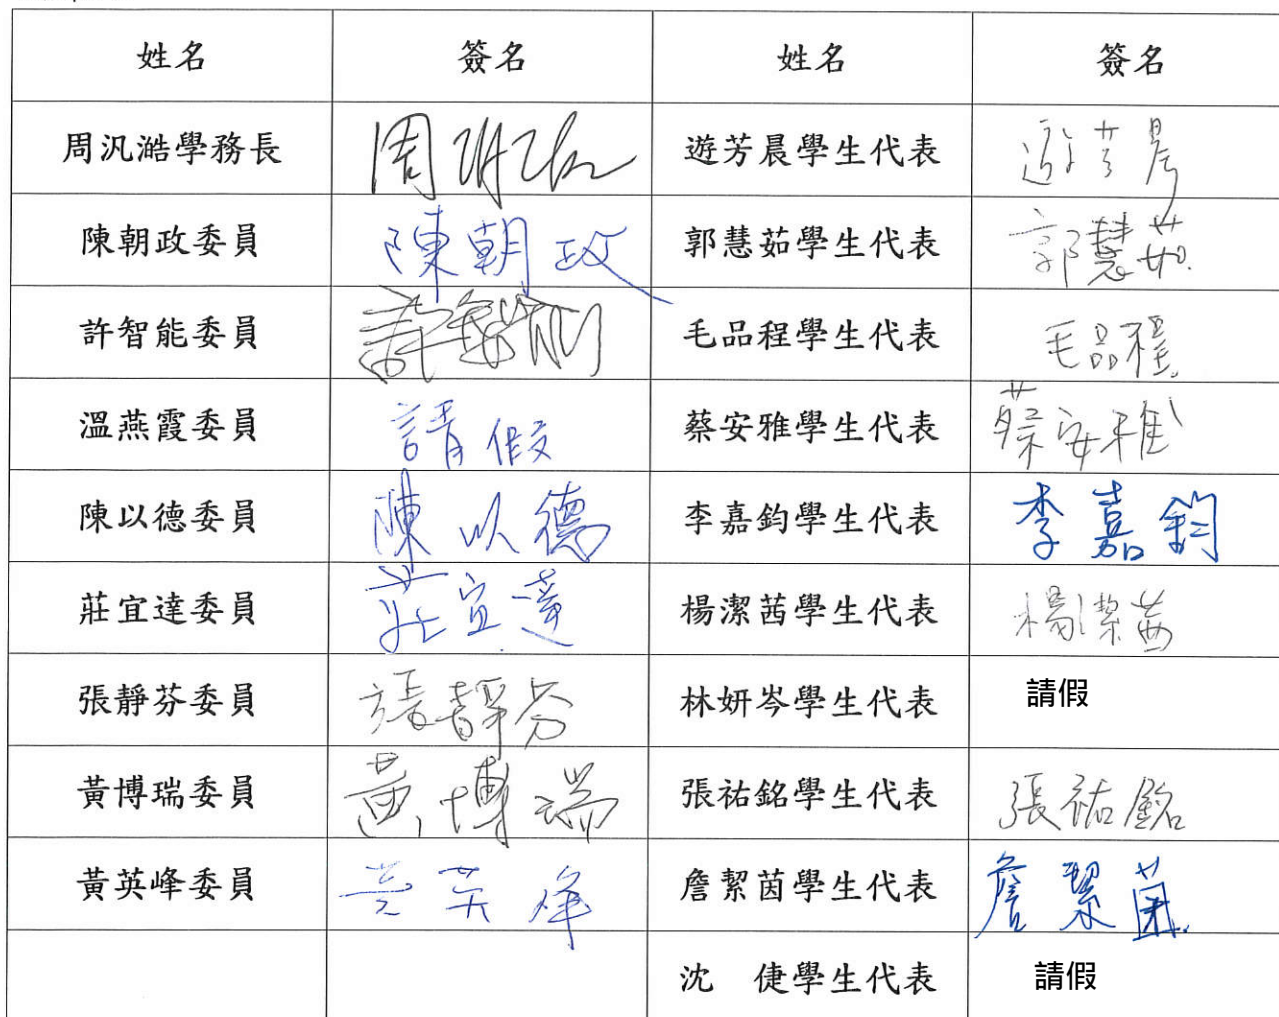 姓名 簽名 姓名 簽名
周汎澔學務長 遊芳晨學生代表 遊芳晨
陳朝政委員 陳朝政 郭慧茹學生代表 郭慧茹
許智能委員 許智能 毛品程學生代表 毛品程
溫燕霞委員 請假 蔡安雅學生代表 蔡安雅
陳以德委員 陳以德 李嘉鈞學生代表 李嘉鈞
莊宜達委員 莊宜達 楊潔茜學生代表 楊潔茜
張靜芬委員 張靜芬 林妍岑學生代表 請假
黃博瑞委員 黃博瑞 張祐銘學生代表 張祐銘
黃英峰委員 黃英峰 詹絜茵學生代表 詹絜茵
沈 倢學生代表 請假